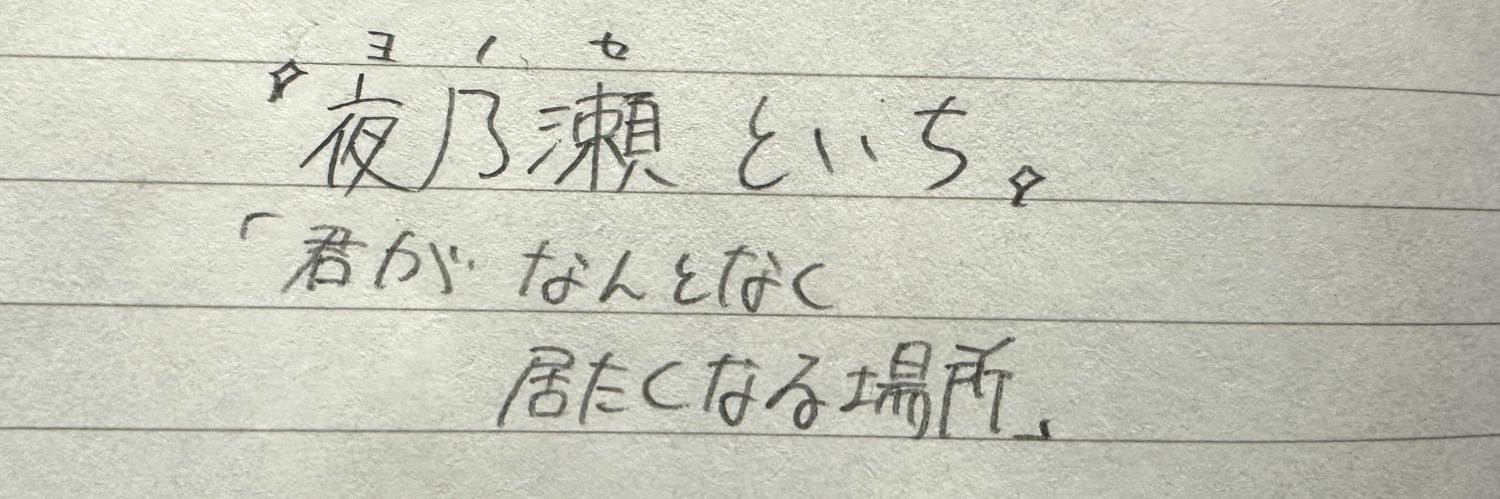 ヨノセ
✧夜乃瀬といち。✧
「君がなんとなく
居たくなる場所」